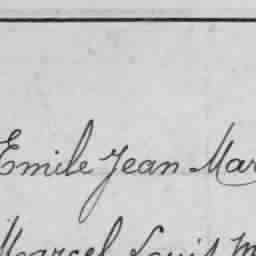 Emile Jean Mar
Marcel Louis M